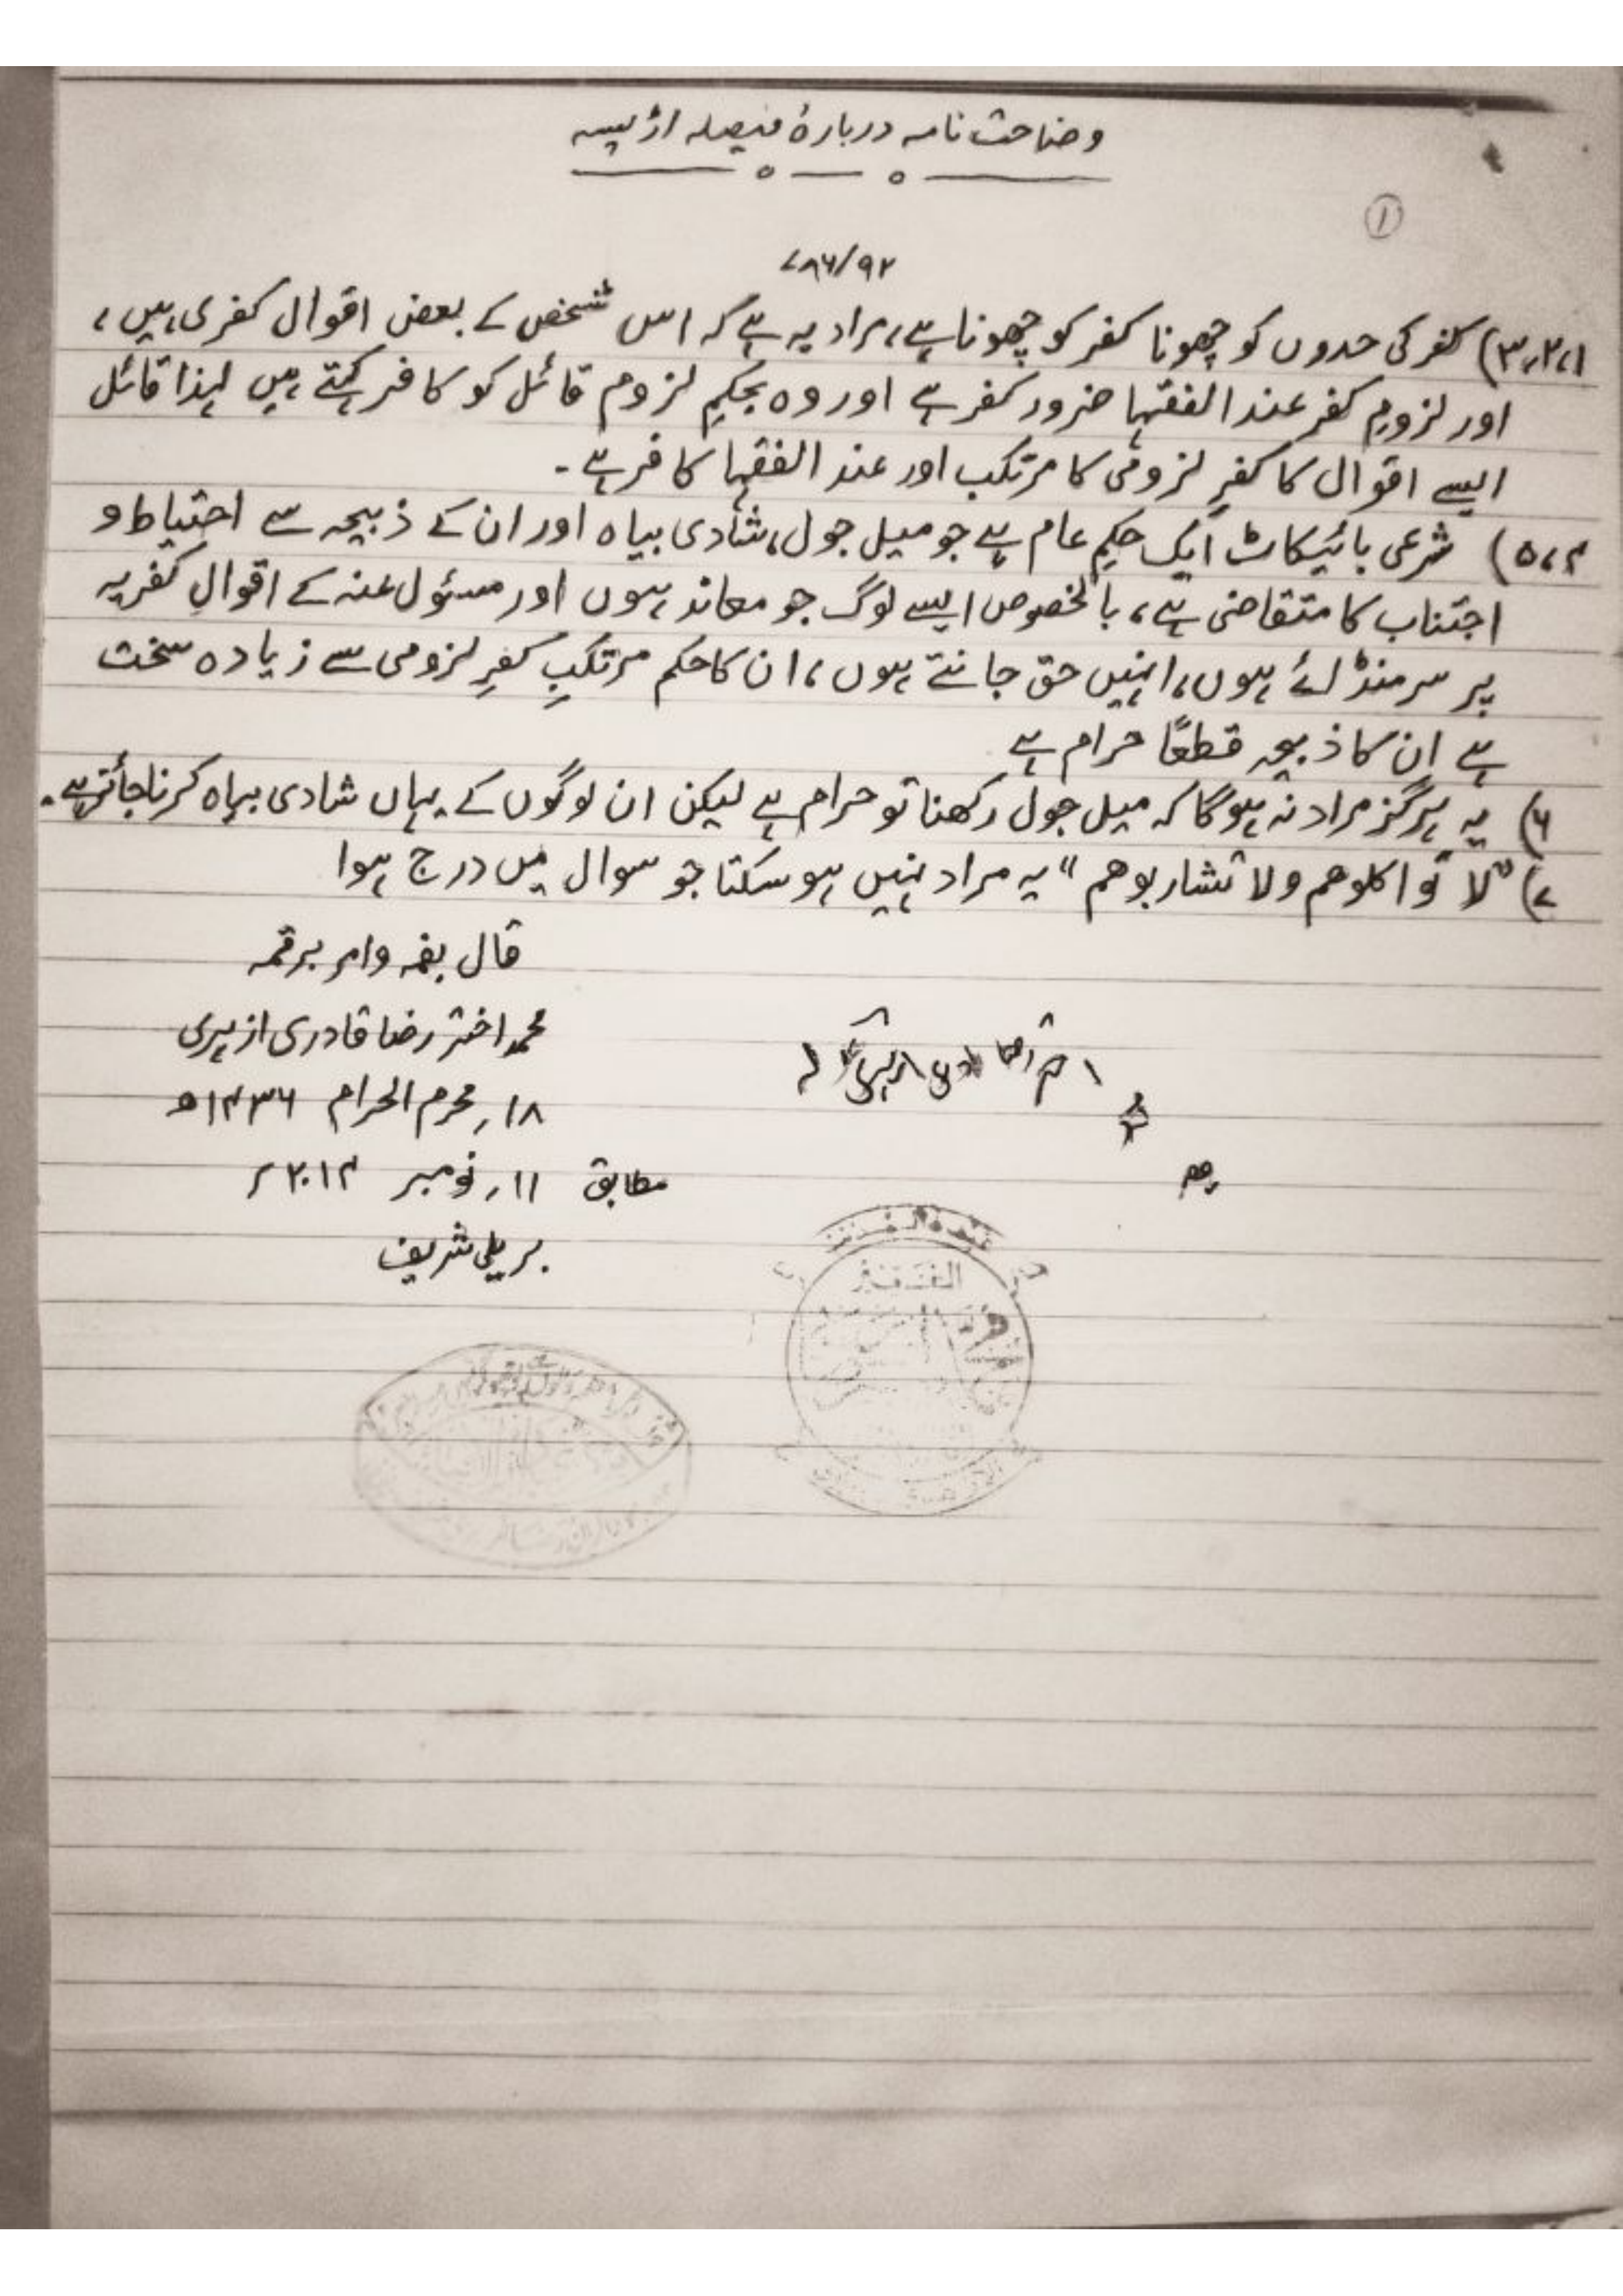 وضاحت نامہ دربارۂ فیصلہ اڑیسہ
①
۷۸۶/۹۲
۱،۲،۳) کفر کی حدوں کو چھونا کفر کو چھونا ہے، مراد یہ ہے کہ اس شخص کے بعض اقوال کفری ہیں،
اور لزومِ کفر عند الفقہا ضرور کفر ہے اور وہ بحکمِ لزوم قائل کو کافر کہتے ہیں لہذا قائل
ایسے اقوال کا کفرِ لزومی کا مرتکب اور عند الفقہا کافر ہے۔
۴،۵) شرعی بائیکاٹ ایک حکمِ عام ہے جو میل جول، شادی بیاہ اور ان کے ذبیحہ سے احتیاط و
اجتناب کا متقاضی ہے، بالخصوص ایسے لوگ جو معاند ہوں اور مسئول عنہ کے اقوالِ کفریہ
پر سر منڈائے ہوں، انہیں حق جانتے ہوں، ان کا حکم مرتکبِ کفرِ لزومی سے زیادہ سخت
ہے ان کا ذبیحہ قطعًا حرام ہے
۶) یہ ہرگز مراد نہ ہوگا کہ میل جول رکھنا تو حرام ہے لیکن ان لوگوں کے یہاں شادی بیاہ کرنا جائز ہے۔
۷) "لا تواکلوھم ولا تشاربوھم" یہ مراد نہیں ہو سکتا جو سوال میں درج ہوا
قال بفمہ وامر برقمہ
محمد اختر رضا قادری ازہری
۱۸؍ محرم الحرام ۱۴۳۶ھ
مطابق ۱۱؍ نومبر ۲۰۱۴ء
بریلی شریف
الفقیر